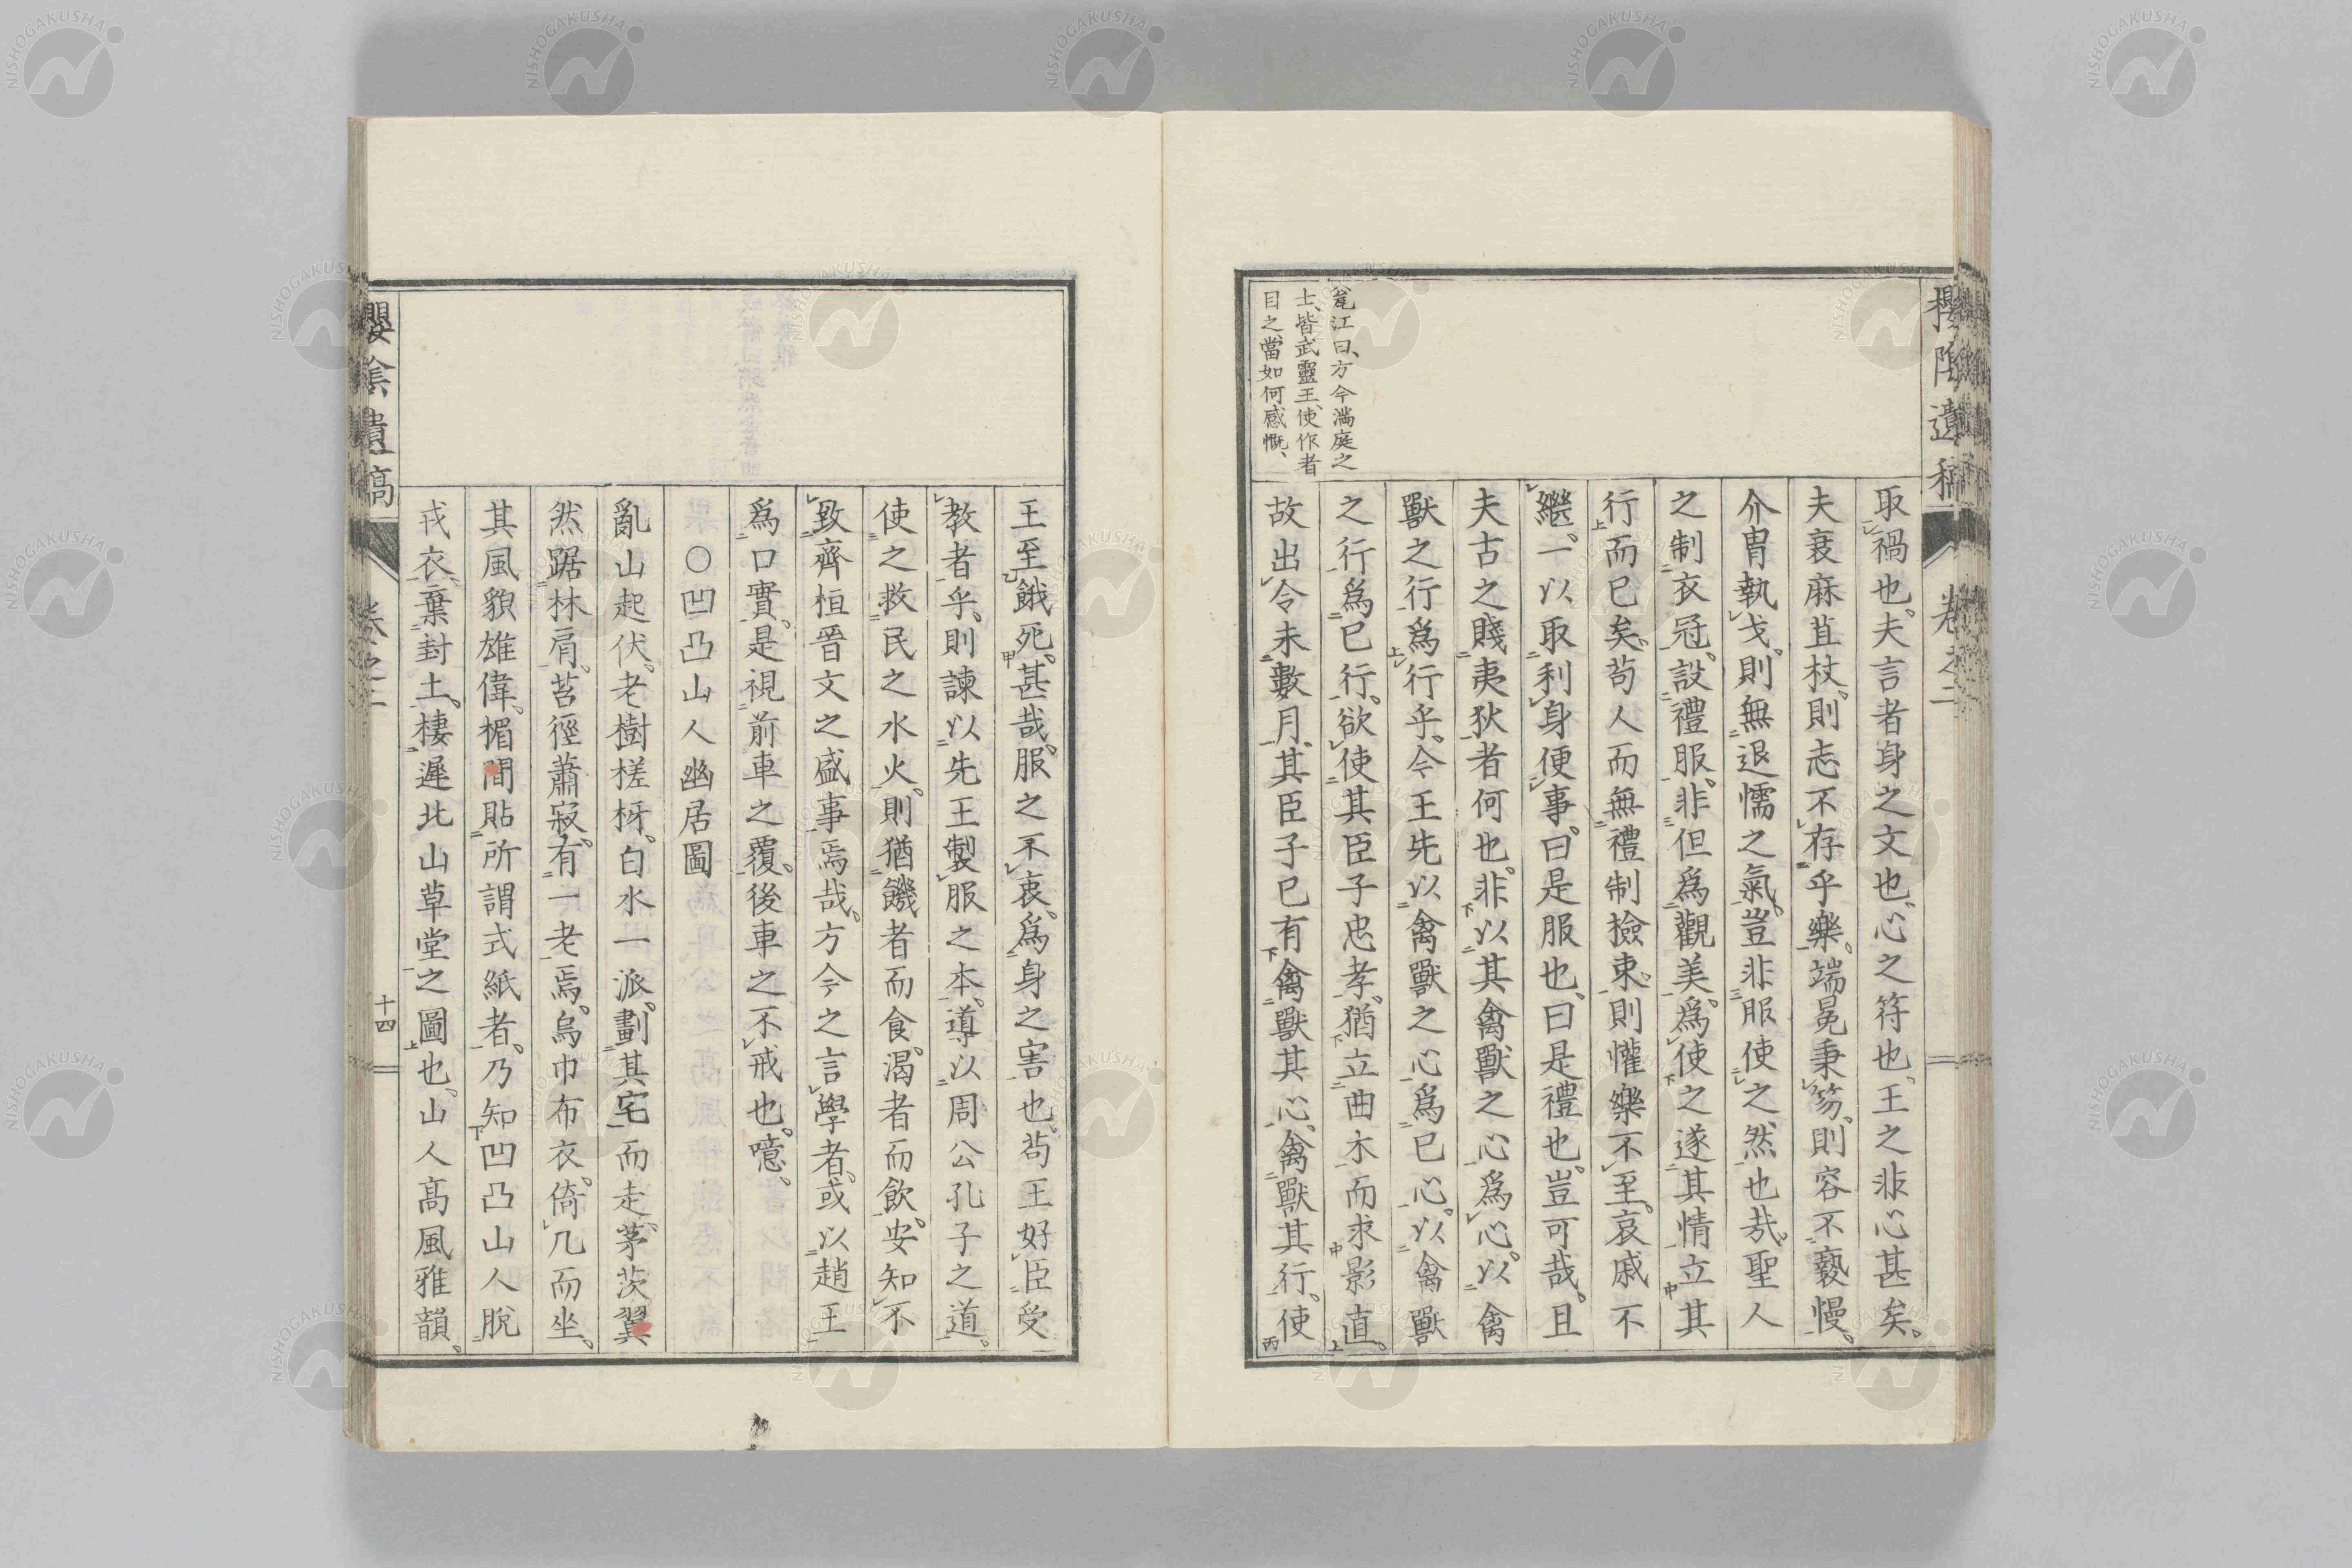 櫻陰遺稿
卷之二
甕江曰、方今滿庭之
士、皆武靈王、使作者
目之、當如何感慨、
取禍也。夫言者身之文也、心之符也、王之非心甚矣。
夫衰麻苴杖、則志不存乎樂。端冕秉笏、則容不褻慢。
介冑執戈、則無退懦之氣。豈非服使之然也哉。聖人
之制衣冠、設禮服、非但爲觀美、爲使之遂其情立其
行而已矣。苟人而無禮制撿束、則懽樂不至。哀戚不
繼、一以取利身便事。曰是服也、曰是禮也。豈可哉。且
夫古之賤夷狄者何也。非以其禽獸之心爲心。以禽
獸之行爲行乎。今王先以禽獸之心爲已心。以禽獸
之行爲已行。欲使其臣子忠孝。猶立曲木而求影直。
故出令未數月、其臣子已有禽獸其心、禽獸其行。使
王至餓死。甚哉、服之不衷、爲身之害也。苟王好臣受
教者乎、則諫以先王製服之本。導以周公孔子之道。
使之救民之水火。則猶饑者而食。渴者而飲。安知不
致齊桓晉文之盛事焉哉。方今之言學者、或以趙王
爲口實。是視前車之覆。後車之不戒也。噫。
○凹凸山人幽居圖
亂山起伏。老樹槎枒。白水一派。劃其宅而走。茅茨翼
然踞林肩。苔徑蕭寂。有一老焉。烏巾布衣。倚几而坐。
其風貌雄偉。楣間貼所謂式紙者。乃知凹凸山人脫
戎衣棄封土。棲遲北山草堂之圖也。山人高風雅韻。
櫻陰遺稿
卷之二
十四